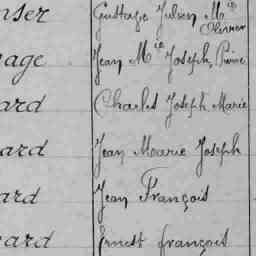 nser Gustave Julien Mie
Olivier
nage Jean Mie Joseph Pierre
ard Charles Joseph Marie
ard Jean Marie Joseph
ard Jean François
eard Ernest françois